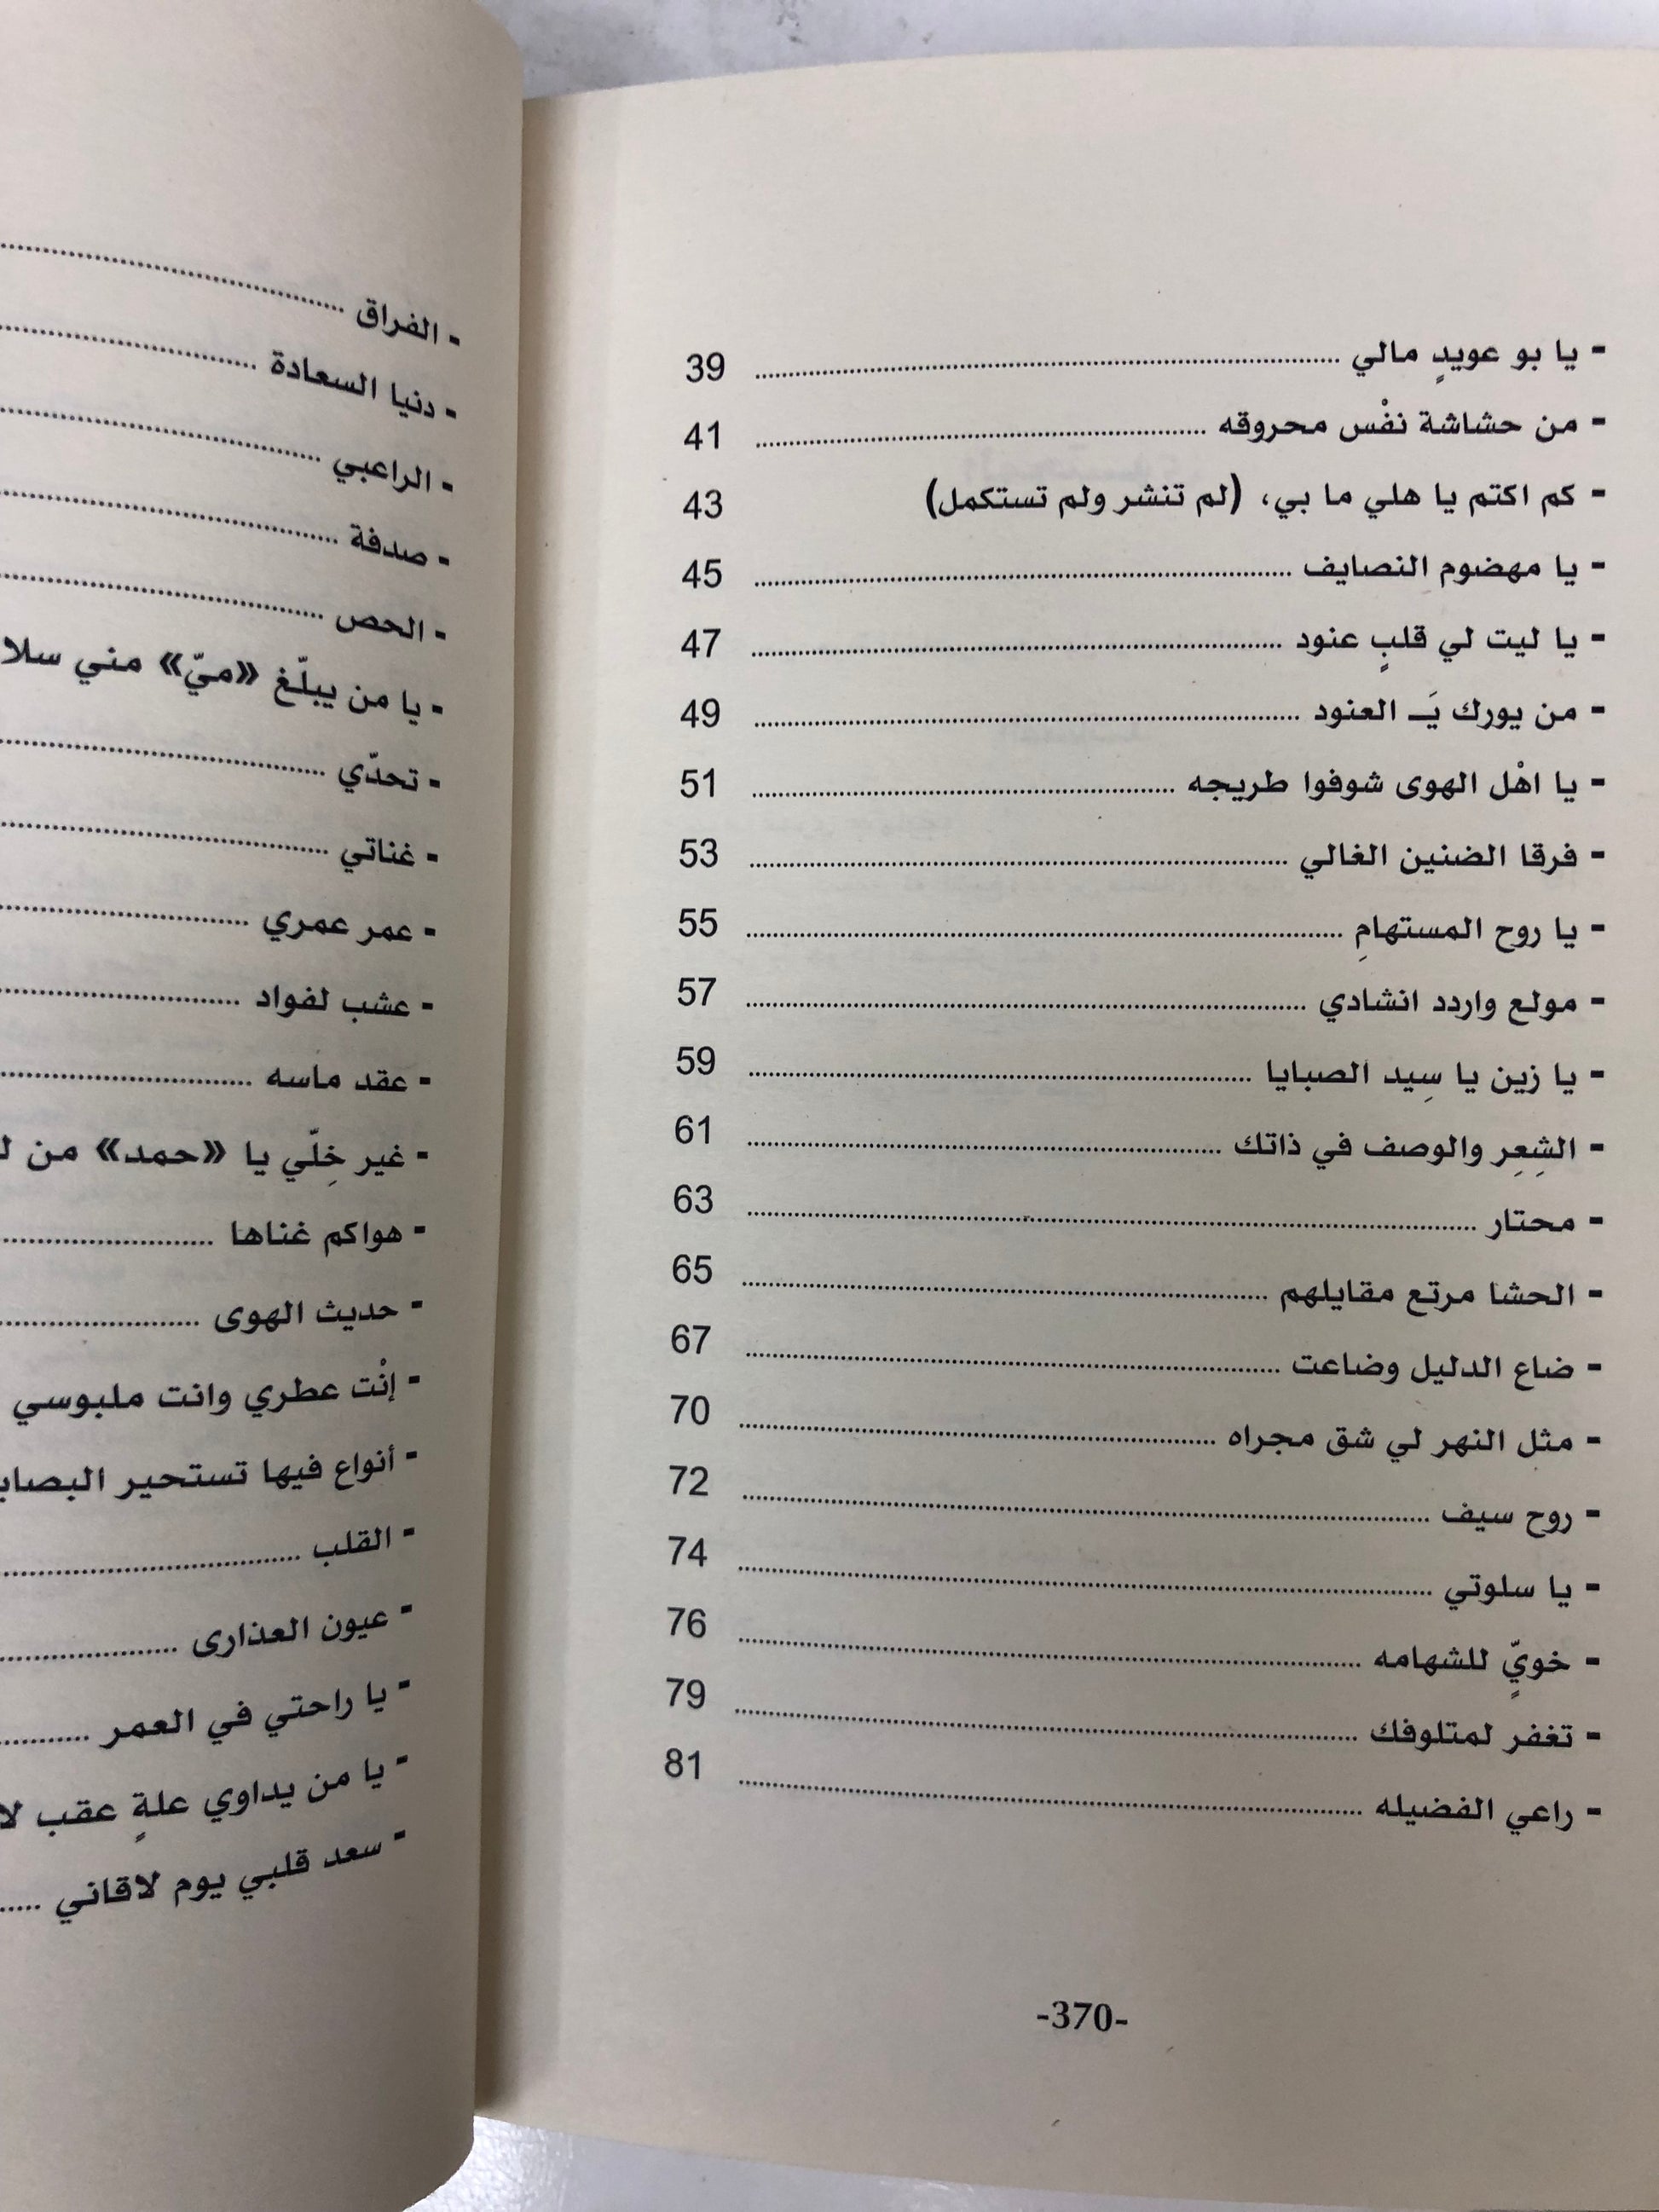 - يا بو عويدٍ مالي ........ 39
- من حشاشة نفْس محروقه ........ 41
- كم اكتم يا هلي ما بي، (لم تنشر ولم تستكمل) 43
- يا مهضوم النصايف ........ 45
- يا ليت لي قلبٍ عنود ........ 47
- من يورك يَـ العنود ........ 49
- يا اهْل الهوى شوفوا طريجه ........ 51
- فرقا الضنين الغالي ........ 53
- يا روح المستهامِ ........ 55
- مولع واردد انشادي ........ 57
- يا زين يا سِيد الصبايا ........ 59
- الشِعِر والوصف في ذاتك ........ 61
- محتار ........ 63
- الحشا مرتع مقايلهم ........ 65
- ضاع الدليل وضاعت ........ 67
- مثل النهر لي شق مجراه ........ 70
- روح سيف ........ 72
- يا سلوتي ........ 74
- خويٍّ للشهامه ........ 76
- تغفر لمتلوفك ........ 79
- راعي الفضيله ........ 81
-370-
- الفراق ........
- دنيا السعادة ........
- الراعبي ........
- صدفة ........
- الحص ........
- يا من يبلّغ «ميّ» مني
- تحدّي ........
- غناتي ........
- عمر عمري ........
- عشب لفواد ........
- عقد ماسه ........
- غير خِلّي يا «حمد» من
- هواكم غناها ........
- حديث الهوى ........
- إنْت عطري وانت ملبوسي
- أنواع فيها تستحير
- القلب ........
- عيون العذارى ........
- يا راحتي في العمر ........
- يا من يداوي علةٍ عقب
- سعد قلبي يوم لاقاني ........